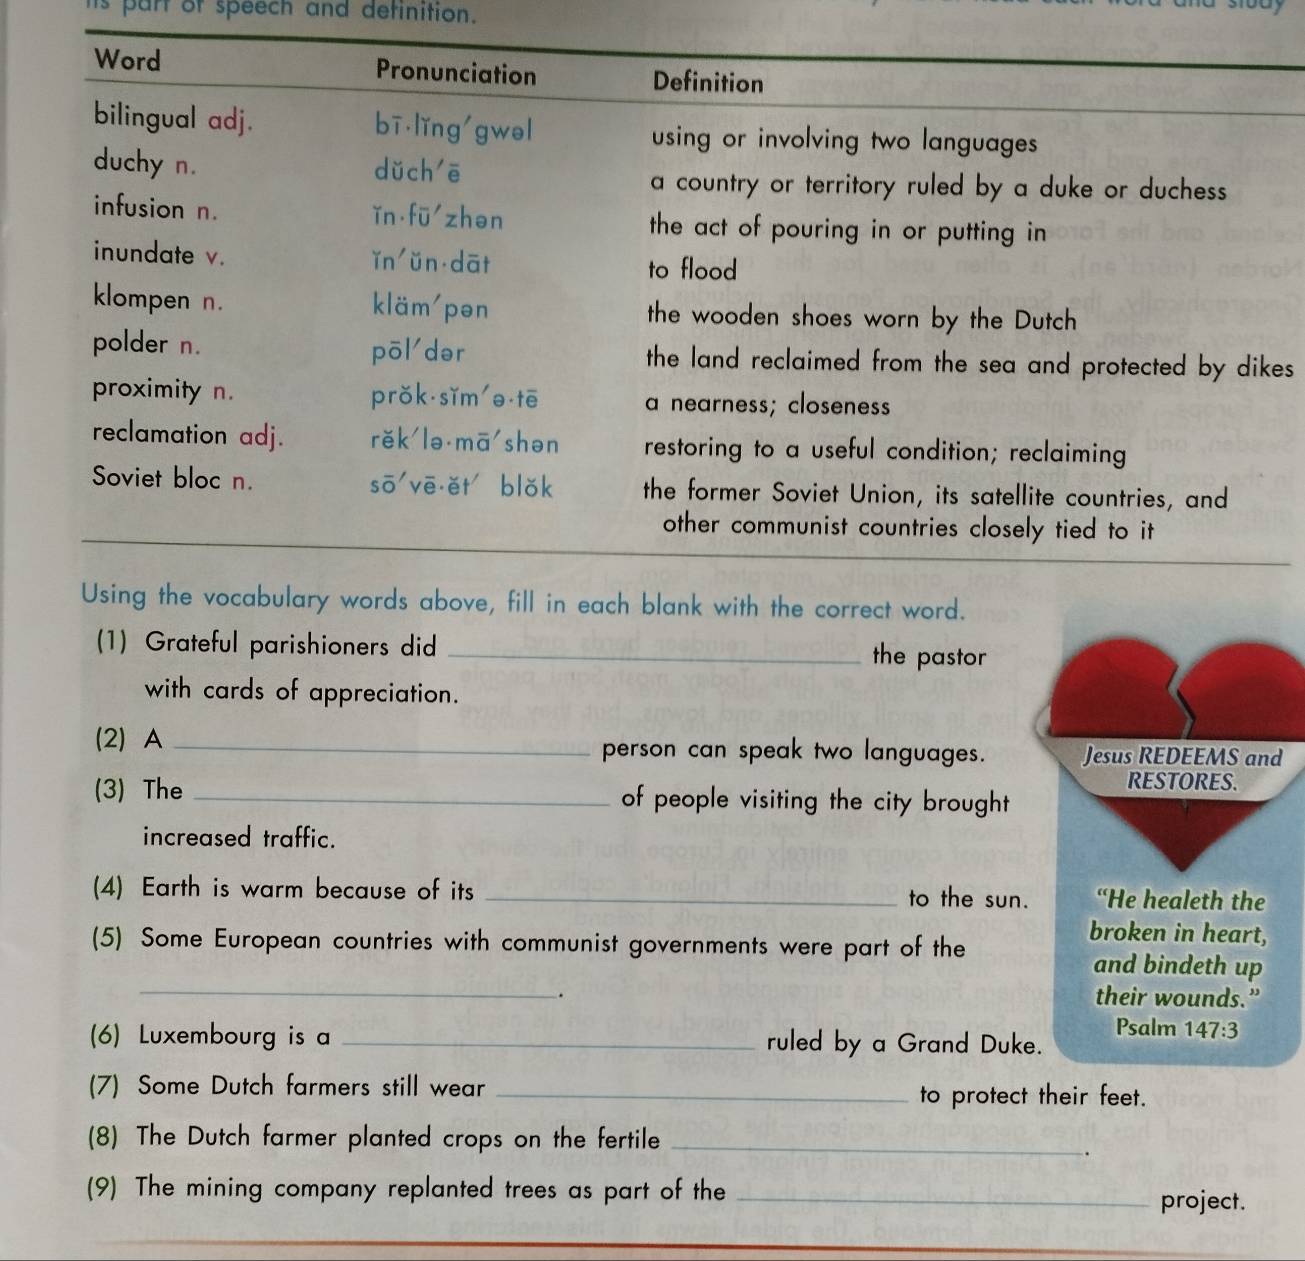 its part of speech and definition.
Word Pronunciation Definition
bilingual adj. bī·lĭng′gwəl using or involving two languages
duchy n. dŭch′ē a country or territory ruled by a duke or duchess
infusion n. ĭn·fū′zhən the act of pouring in or putting in
inundate v. ĭn′ŭn·dāt to flood
klompen n. kläm′pən the wooden shoes worn by the Dutch
polder n. pōl′dər the land reclaimed from the sea and protected by dikes
proximity n. prŏk·sĭm′ə·tē a nearness; closeness
reclamation adj. rĕk′lə·mā′shən restoring to a useful condition; reclaiming
Soviet bloc n. sō′vē·ĕt′ blŏk the former Soviet Union, its satellite countries, and
other communist countries closely tied to it
Using the vocabulary words above, fill in each blank with the correct word.
(1) Grateful parishioners did ____ the pastor
with cards of appreciation.
(2) A ____ person can speak two languages.
(3) The ____ of people visiting the city brought
increased traffic.
(4) Earth is warm because of its ____ to the sun.
(5) Some European countries with communist governments were part of the
____.
(6) Luxembourg is a ____ ruled by a Grand Duke.
(7) Some Dutch farmers still wear ____ to protect their feet.
(8) The Dutch farmer planted crops on the fertile ____.
(9) The mining company replanted trees as part of the ____ project.
Jesus REDEEMS and
RESTORES.
“He healeth the
broken in heart,
and bindeth up
their wounds.”
Psalm 147:3